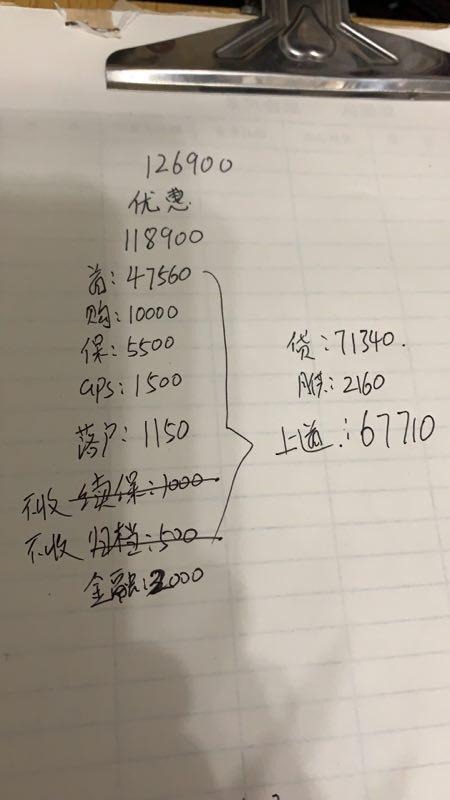 126900
优惠
118900
首:47560
购:10000
保:5500
GPS:1500
落户:1150
不收 续保:1000
不收 归档:500
金融:2000
贷:71340.
月供:2160
上道:67710